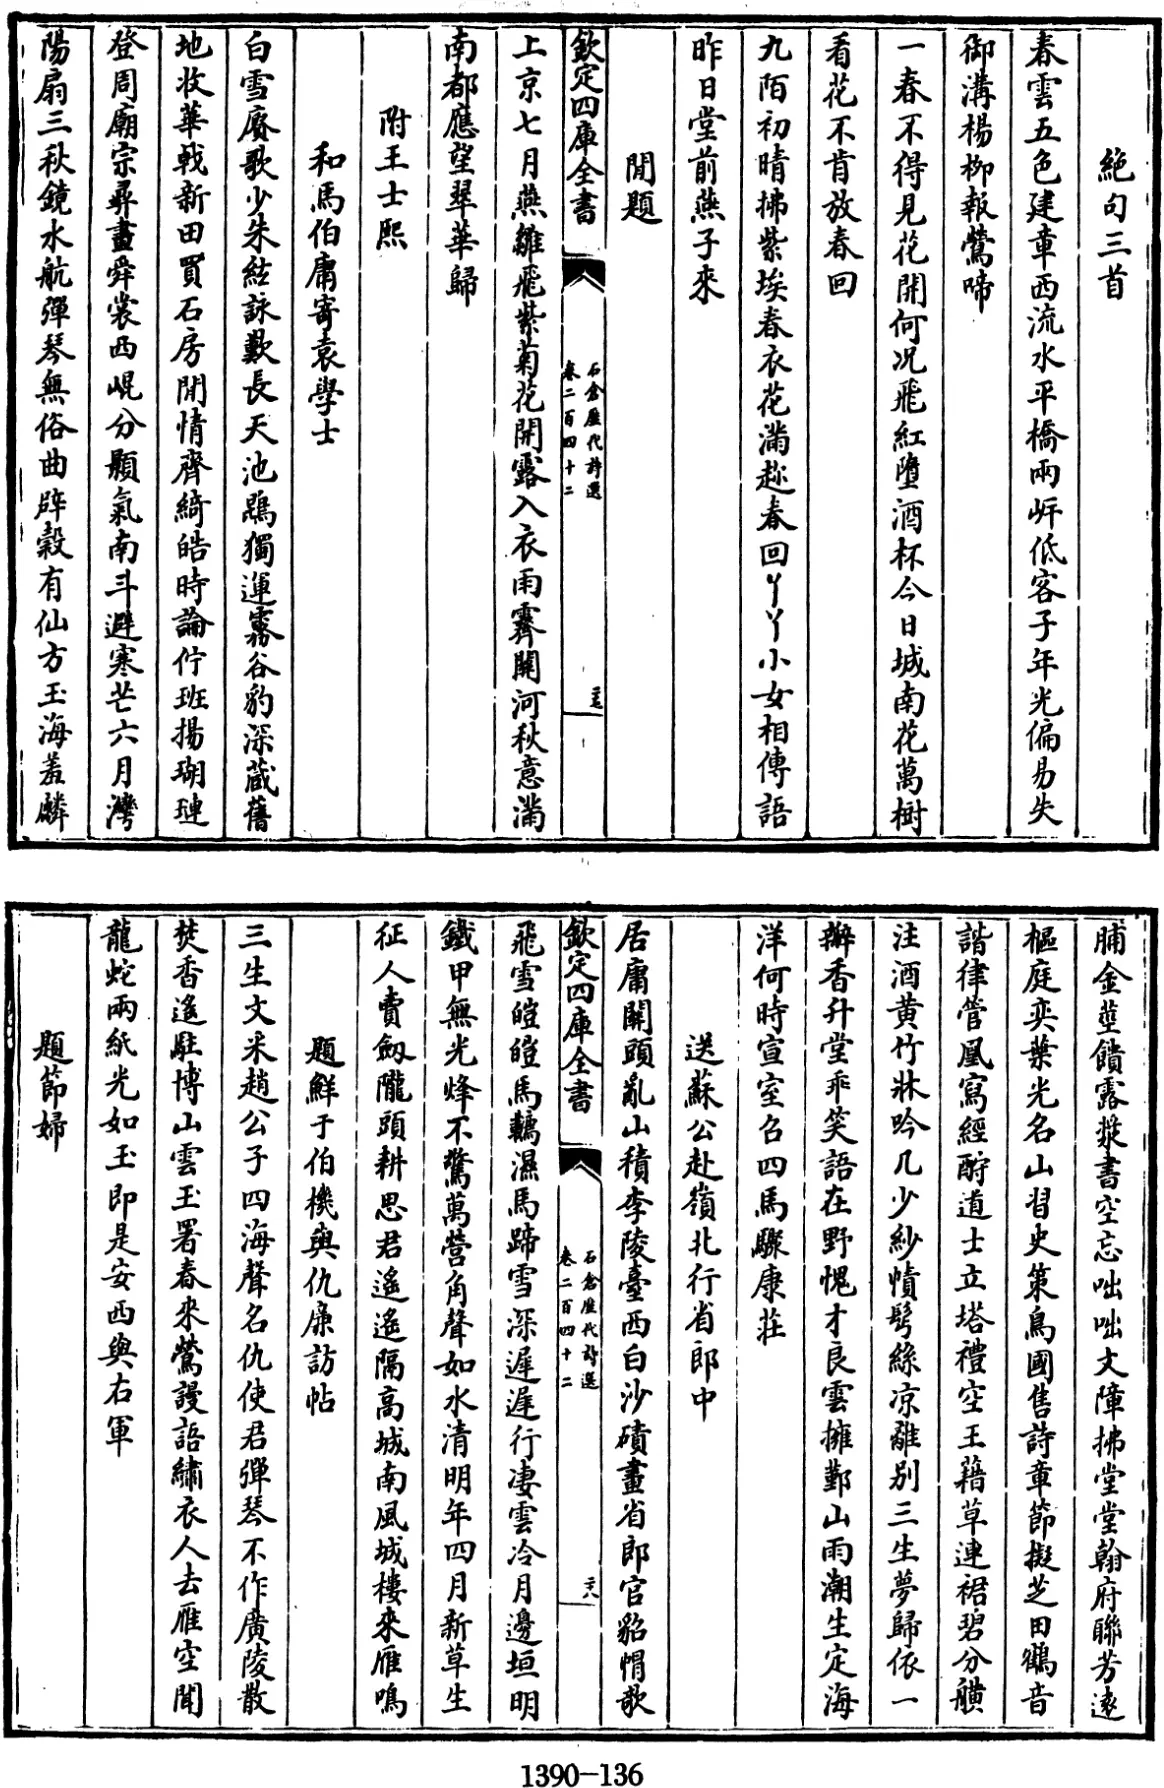 絶句三首
春雲五色建章西流水平橋兩岸低客子年光偏易失
御溝楊柳報鶯啼
一春不得見花開何况飛紅墮酒杯今日城南花萬樹
看花不肯放春回
九陌初晴拂紫埃春衣花滿趂春回丫丫小女相傳語
昨日堂前燕子來
閒題
欽定四庫全書
石倉歴代詩選
卷二百四十二
二七
上京七月燕雛飛紫菊花開露入衣雨霽關河秋意滿
南都應望翠華歸
附王士熈
和馬伯庸寄袁學士
白雪賡歌少朱絃詠歎長天池鵾獨運霧谷豹深藏舊
地收華戟新田買石房閒情齊綺皓時論佇班揚瑚璉
登周廟宗彛畫舜裳西崐分顥氣南斗避寒芒六月灣
陽扇三秋鏡水航彈琴無俗曲辟穀有仙方玉海羞麟
脯金莖饋露漿書空忘咄咄文陣拂堂堂翰府聯芳逺
樞庭奕葉光名山㫺史第鳥國售詩章節擬芝田鶴音
諧律管凰寫經酧道士立塔禮空王藉草連裾碧分觵
注酒黄竹牀吟几少紗幘髩絲凉離别三生夢歸依一
瓣香升堂乖笑語在野愧才良雲擁鄞山雨潮生定海
洋何時宣室召四馬驟康莊
送蘇公赴嶺北行省郎中
居庸關頭亂山積李陵臺西白沙磧畫省郎官貂帽歌
欽定四庫全書
石倉歴代詩選
卷二百四十二
二六
飛雪皚皚馬韉濕馬蹄雪深遲遲行凄雲冷月邊垣明
鐵甲無光烽不驚萬營角聲如水清明年四月新草生
征人賣劔隴頭耕思君遙遙隔高城南風城樓來雁鳴
題鮮于伯機與仇廉訪帖
三生文采趙公子四海聲名仇使君彈琴不作廣陵散
焚香遙駐博山雲玉署春來鶯謾語繡衣人去雁空聞
龍蛇兩紙光如玉即是安西與右軍
題節婦
1390-136